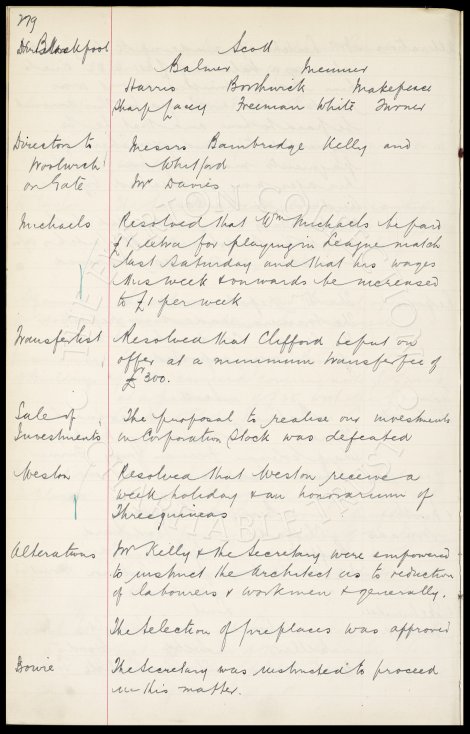 279
Scott
Blackpool
Balmer Meunier
Harris Borthwick Makepeace
Sharp Lacey Freeman White Turner
Directors to Messrs Bainbridge Kelly and
Woolwich Whitford
on Gate Mr Davies
Michaels Resolved that Wm Michaels be paid
£1 extra for playing in League match
last Saturday and that his wages
this week & onwards be increased
to £1 per week
Transfer list Resolved that Clifford be put on
offer at a minimum transfer fee of
£300.
Sale of The proposal to realise our investments
Investments in Corporation Stock was defeated
Weston Resolved that Weston receive a
week holiday & an honorarium of
Three guineas
Alterations Mr Kelly & the Secretary were empowered
to instruct the Architect as to reduction
of labourers & workmen & generally.
The selection of fireplaces was approved
Bowie The Secretary was instructed to proceed
in this matter.